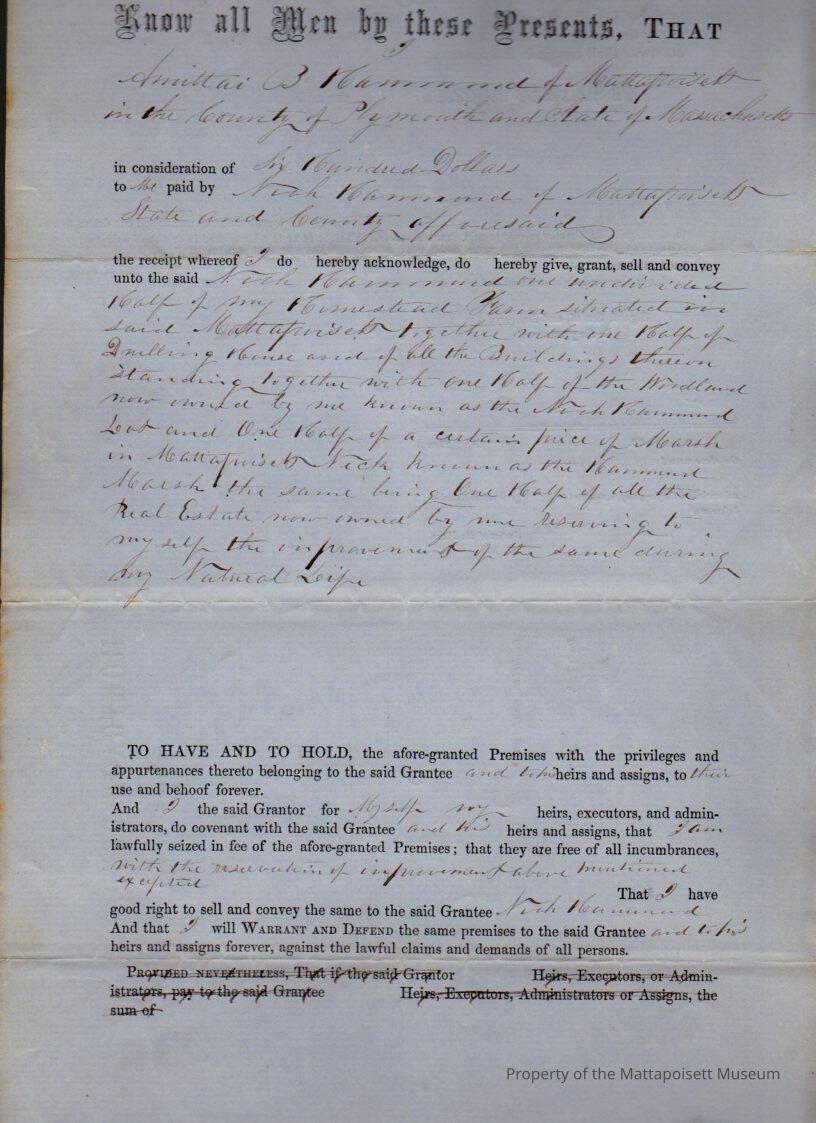 Know all Men by these Presents, THAT
I
Amittai B Hammond of Mattapoisett
in the County of Plymouth and State of Massachusetts
in consideration of Six Hundred Dollars
to Me paid by Noah Hammond of Mattapoisett
State and County afforesaid
the receipt whereof I do hereby acknowledge, do hereby give, grant, sell and convey
unto the said Noah Hammond one undivided
Half of my Homestead Farm situated in
said Mattapoisett together with one Half of
Dwelling House and of all the Buildings thereon
standing together with one Half of the Woodland
now owned by me known as the Noah Hammond
Lot and One Half of a certain piece of Marsh
in Mattapoisett Neck known as the Hammond
Marsh the same being One Half of all the
Real Estate now owned by me reserving to
myself the improvement of the same during
my Natural Life
TO HAVE AND TO HOLD, the afore-granted Premises with the privileges and
appurtenances thereto belonging to the said Grantee and to his heirs and assigns, to their
use and behoof forever.
And I the said Grantor for Myself my heirs, executors, and admin-
istrators, do covenant with the said Grantee and his heirs and assigns, that I am
lawfully seized in fee of the afore-granted Premises; that they are free of all incumbrances,
with the reservation of improvement above mentioned
excepted
That I have
good right to sell and convey the same to the said Grantee Noah Hammond
And that I will WARRANT AND DEFEND the same premises to the said Grantee and to his
heirs and assigns forever, against the lawful claims and demands of all persons.
PROVIDED NEVERTHELESS, That if the said Grantor Heirs, Executors, or Admin-
istrators, pay to the said Grantee Heirs, Executors, Administrators or Assigns, the
sum of
Property of the Mattapoisett Museum